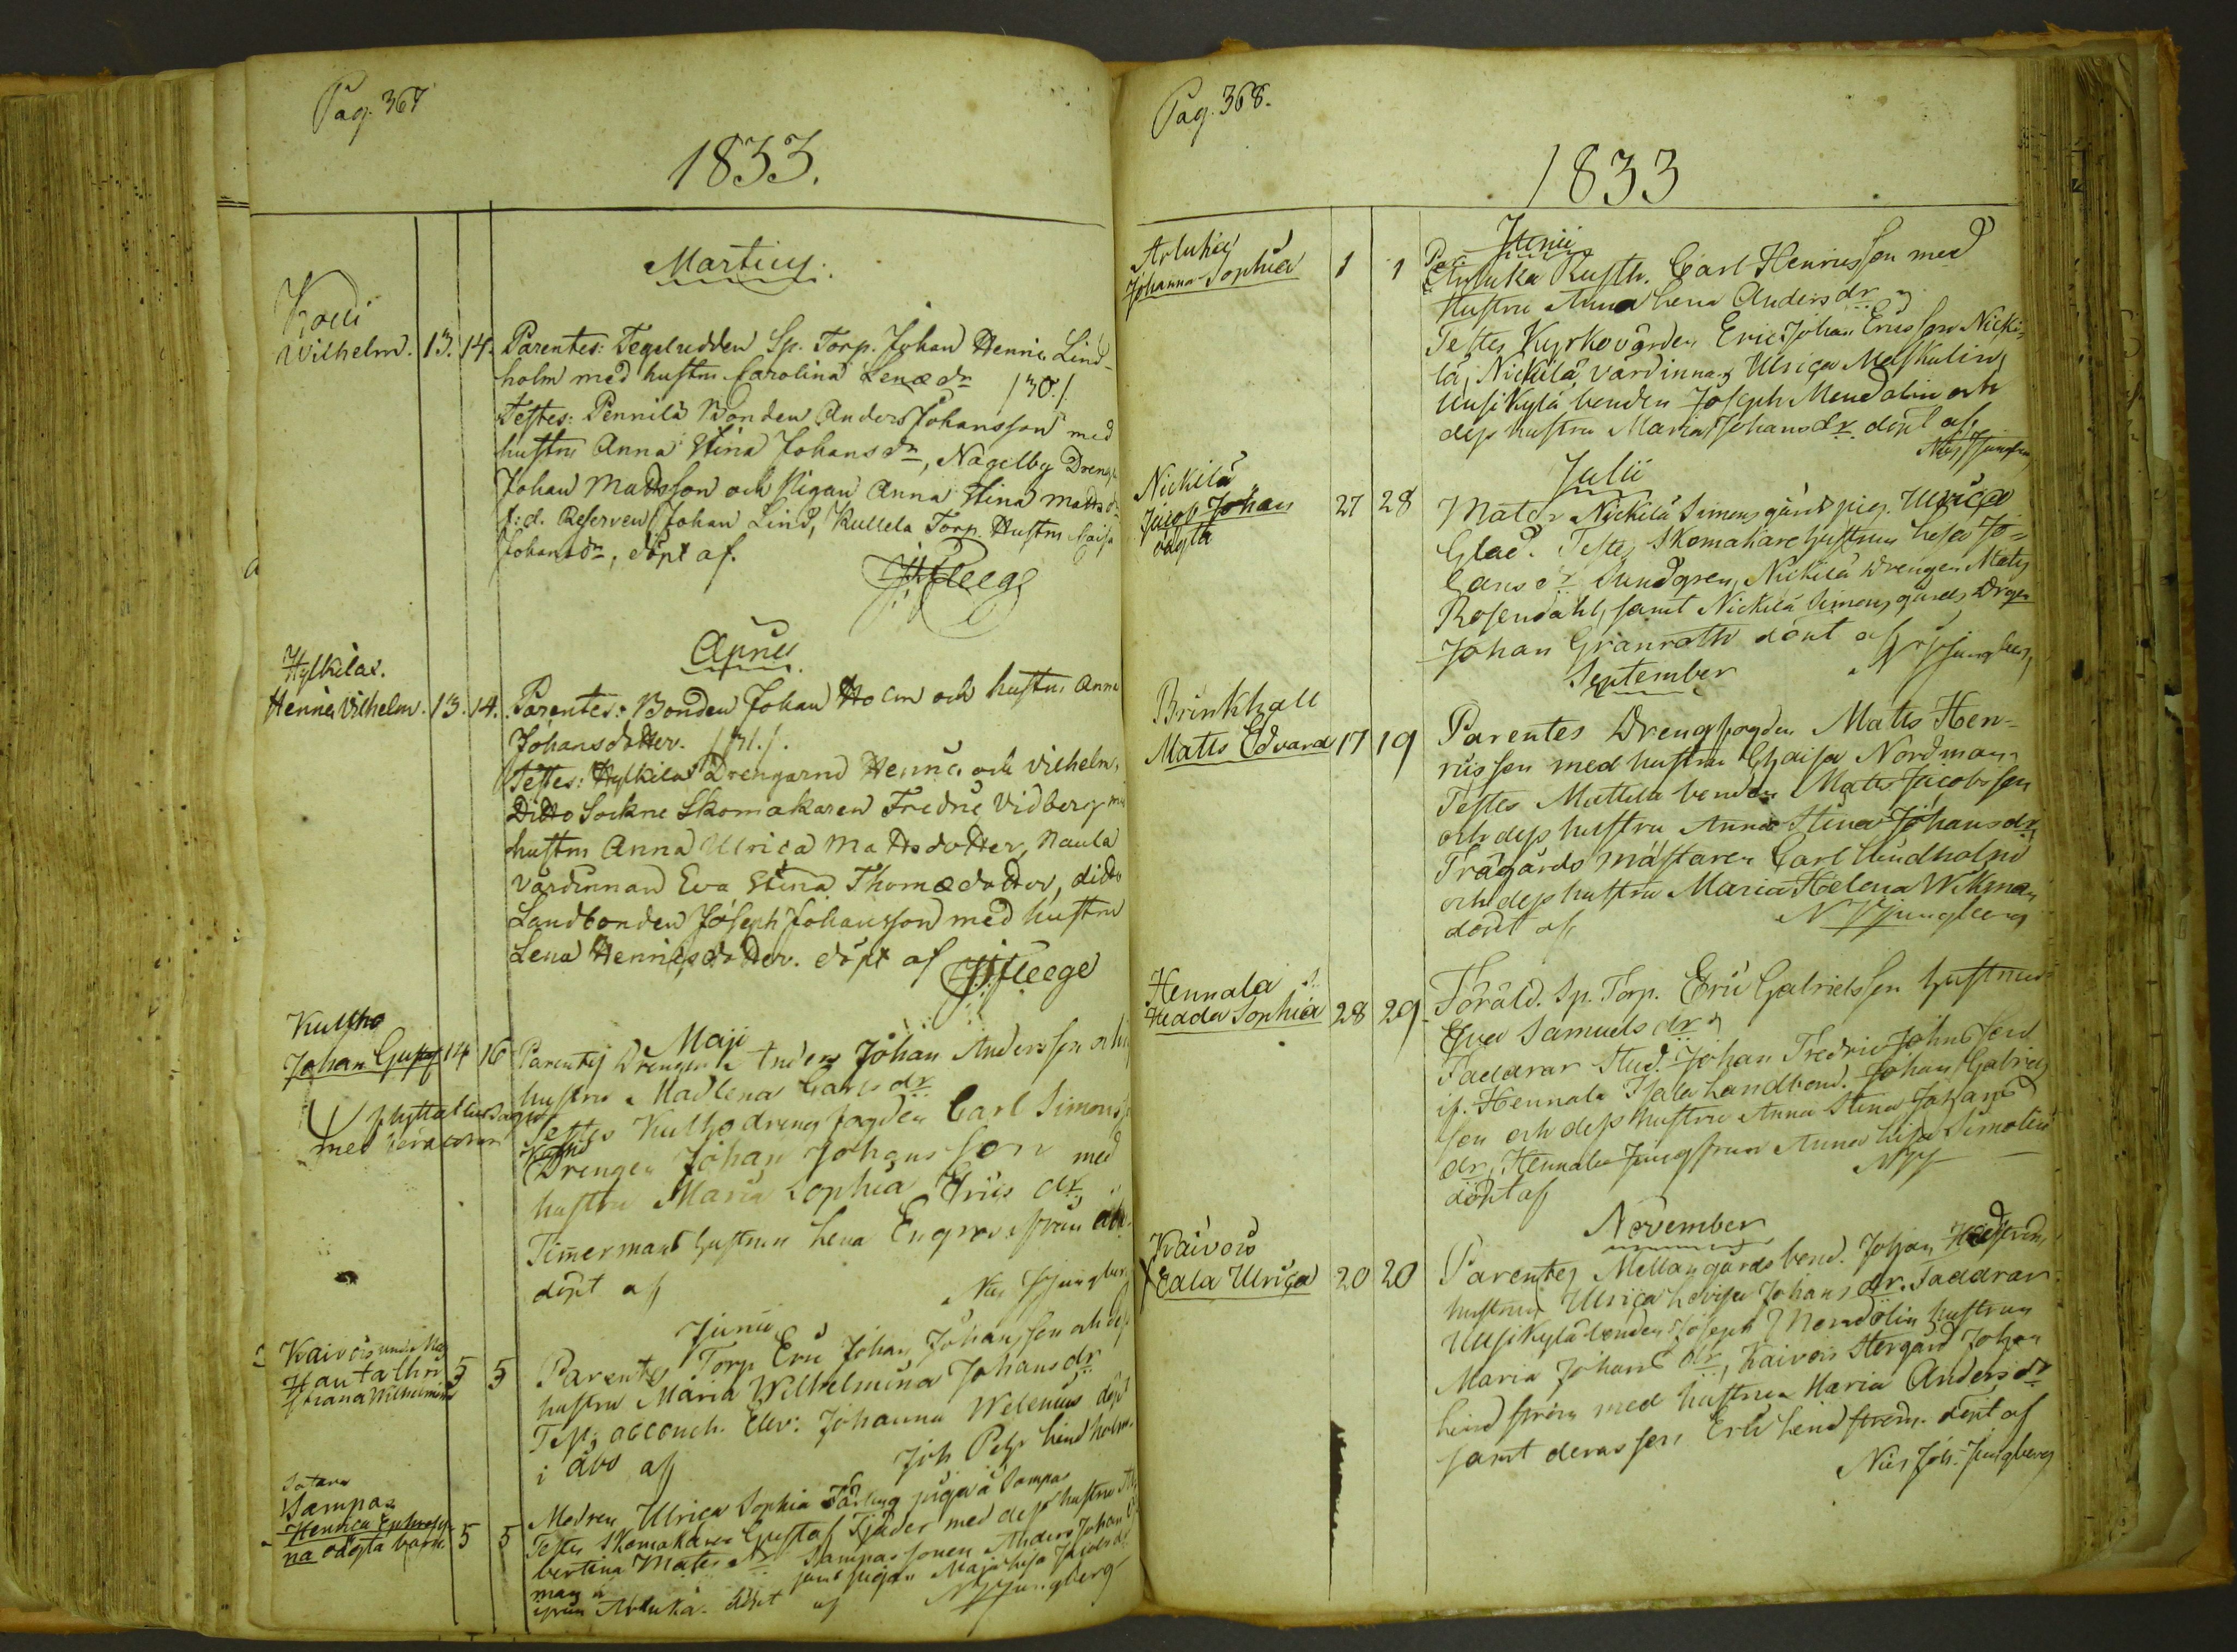 Pag. 367
1833.
Martius.
Koui
Wilhelm. 13. 14. Parentes: Tegeludden Sp. Torp. Johan Henric Lind-
holm med hustru Carolina Lenæ dr /30./
Testes: Pennilä Bonden Anders Johansson med
hustru Anna Stina Johansdr, Nägelby Dreng
Johan Madsson och Pigan Anna Stina Mattsdr
f: d. Reserven Johan Lind, Kullela Torp. Hustru Caisa
Johansdr, döpt af.
Aprilis
Hylkilä.
Henric Vilhelm. 13. 14. Parentes: Bonden Johan Holm och hustru Anna
Johansdotter. /31./.
Testes: Hylkilä Drengarne Henric och Vilhelm,
Ditto Sockne Skomakaren Fredric Vidberg med
hustru Anna Ulrica Mattsdotter, Naula
värdinnan Eva Stina Thomædotter, ditto
Landbonden Joseph Johansson med hustru
Lena Henricsdotter. döpt af
Maji
Kultho
Johan Gustaf 14 16 Parentes Drengen Anders Johan Andersson och
hustru Madlena Carls dr
flyttat
med
Testes Kultho drengfogden Carl Simons
son
Drengen Johan Johansson med
hustru Maria Sophia Erics dr,
Timermans hustrun Lena Engren ifrån åbo
döpt af Nils Ljungberg
Junii
Kaivois
Hautalhn
Wilhelmina 5 5 Parentes Torp Eric Johan Johansson och dess
hustru Maria Wilhelmina Johans dr
Test: accouch. Elev: Johanna Welenius döpt
i åbo af Joh Petr Lindholm.
Satava
Sampas
Henrica Ephrosy-
na oägta barn 5 5 Modren Ulrica Sophia Färling piga å Sampas
Testes Skomakaren Gustaf Fjäder med dess hustru Al-
bertina Mats dr Sampas sonen Anders Johan
samt pigan Maja Lisa Jacobs dr
ifrån Artuka. döpt af N J Ljungberg
Pag. 368.
1833
Junii
Artukais
Johanna Sophia 1 1 Par:
Artuka Rusth. Carl Henricsson med
hustru Anna Lena Anders dr
Testes Kyrkovärden Eric Johan Ericsson Nicki-
lä, Nickilä värdinnan Ulrica Maskulin,
Uusikylä bonden Joseph Mendolin och
dess hustru Maria Johans dr. döpt af,
Nils Ljungberg
Julii
Nickilä
Jacop Johan
oägta 27 28 Mater Nickilä Simonsgårds pig. Ulrica
Glad. Testes Skomakare hustrun Lisa Jo-
hans dr Sundgren, Nickilä Drengen Mats
Rosendahl, samt Nickilä Simons gårds Drgen
Johan Granroth döpt af Ljungberg
September
Brinkhall
Matts Edvard 17 19 Parentes Drengfogden Matts Hen-
ricsson med hustru Chaisa Nordman,
Testes Mattila bonden Matts Jacobsson
och dess hustru Anna Stina Johans dr,
Trägårds mästaren Carl Lindholm
och dess hustru Maria Helena Wikman
döpt af, N J Ljungberg
Hennala
Hedda Sophia 28 29 Föräld. Sp. Torp. Eric Gabrielsson hustrun
Eva Samuels dr
Faddrar Stud. Johan Fredric Johnsson
if. Hennala Tjala Landbond. Johan Gabriels
son och dess hustru Anna Stina Johans
dr, Hennala Jungfrun Anna Lisa Simolin
döpt af NJL
November
Kaivois
Eala Ulrica 20 20 Parentes Mellangårds bond. Johan
hustrun Ulrica Lovisa Johans dr. Faddrar
Uusikylä bonden Joseph Mendolin hustrun
Maria Johans dr, Kaivois Stergård Johan
Lindström med hustrun Maria Anders dr
samt deras son Eric Lindström. döpt af
Nils Joh. Ljungberg